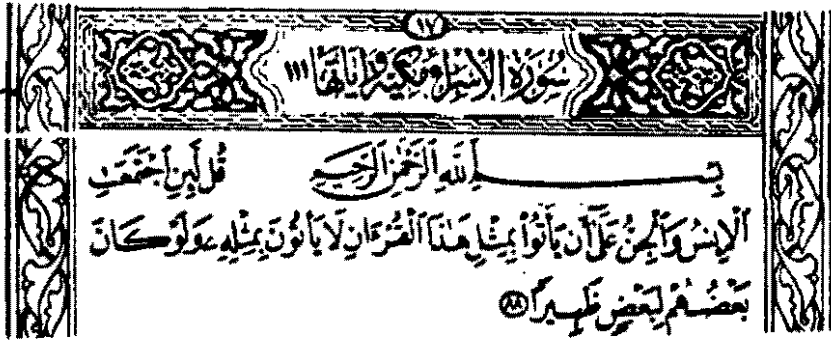 ١٧
سُورَةُ الْإِسْرَاءِ مَكِّيَّة وَآيَاتهَا ١١١
بِسْمِ ٱللَّهِ ٱلرَّحْمَٰنِ ٱلرَّحِيمِ قُل لَّئِنِ ٱجْتَمَعَتِ
ٱلْإِنسُ وَٱلْجِنُّ عَلَىٰٓ أَن يَأْتُوا۟ بِمِثْلِ هَٰذَا ٱلْقُرْءَانِ لَا يَأْتُونَ بِمِثْلِهِۦ وَلَوْ كَانَ
بَعْضُهُمْ لِبَعْضٍ ظَهِيرًا ٨٨